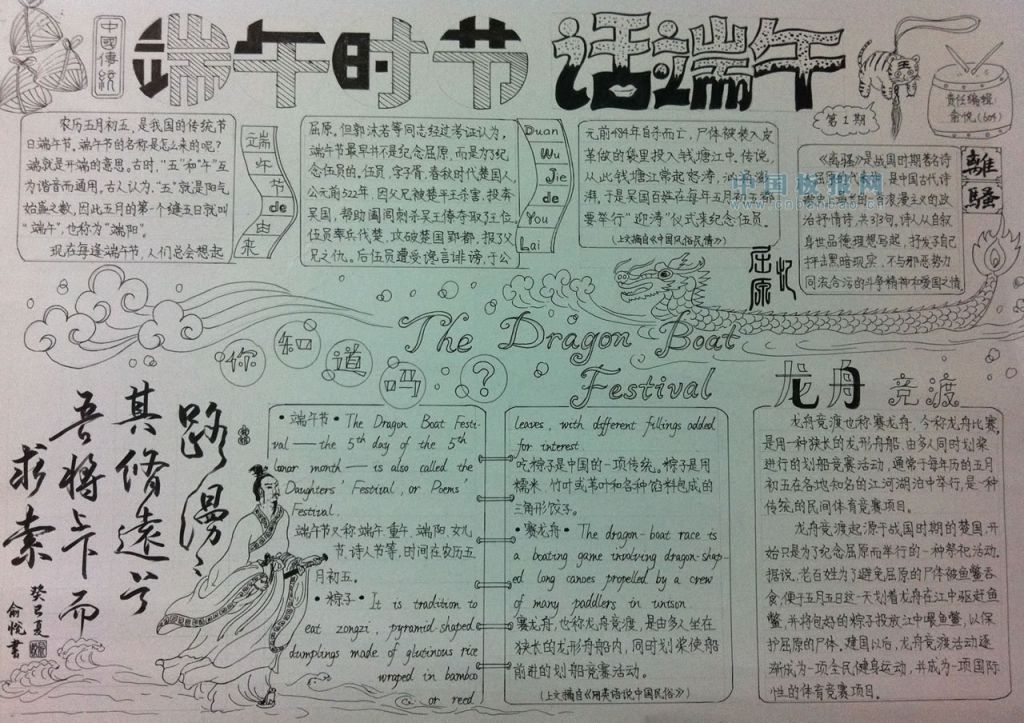 中國傳統
端午时节
话端午
第1期
责任编辑
俞悦(604)
农历五月初五,是我国的传统节
日端午节,端午节的名称是怎么来的呢?
端就是开端的意思。古时,“五”和“午”互
为谐音而通用,古人认为,“五”就是阳气
始盛之数,因此五月的第一个逢五日就叫
“端午”,也称为“端阳”。
现在每逢端午节,人们总会想起
端午节de由来
屈原。但郭沫若等同志经过考证认为,
端午节最早并不是纪念屈原,而是为了纪
念伍员的。伍员,字子胥,春秋时代楚国人,
公元前522年,因父兄被楚平王杀害,投奔
吴国,帮助阖闾刺杀吴王僚夺取了王位。
伍员率兵伐楚,攻破楚国郢都,报了父
兄之仇。后伍员遭受谗言诽谤,于公
Duan
Wu
Jie
de
You
Lai
元前484年自杀而亡,尸体被装入皮
革做的袋里投入钱塘江中。传说,
从此钱塘江常起怒涛,汹涌澎
湃,于是吴国百姓在每年五月初五都
要举行“迎涛”仪式来纪念伍员。
(上文摘自《中国风俗民情》)
《离骚》是战国时期著名诗
人屈原的代表作,是中国古代诗
政治抒情诗,共373句,诗人从自叙
身世品德理想写起,抒发了自己
抨击黑暗现实,不与邪恶势力
同流合污的斗争精神和爱国之情
離騷
中国板报网
www.cnbanbao.cn
忆屈原
The Dragon Boat
Festival
你知道吗?
路漫漫
其修遠兮
吾將上下而
求索
癸巳夏
俞悦書
·端午节·The Dragon Boat Festi-
val—the 5th day of the 5th
lunar month—is also called the
Daughters' Festival, or Poems'
Festival.
端午节又称端午,重午,端阳,女儿
节,诗人节等,时间在农历五
月初五。
·粽子·It is tradition to
eat zongzi, pyramid-shaped
dumplings made of glutinous rice
wraped in bamboo
or reed
leaves, with different fillings added
for interest.
吃粽子是中国的一项传统。粽子是用
糯米、竹叶或苇叶和各种馅料包成的
三角形饺子。
·赛龙舟·The dragon-boat race is
a boating game involving dragon-shap-
ed long canoes propelled by a crew
of many paddlers in unison.
赛龙舟,也称龙舟竞渡,是由多人坐在
狭长的龙形舟船内,同时划桨使船
前进的划船竞赛活动。
(上文摘自《用英语说中国民俗》)
龙舟竞渡
龙舟竞渡也称赛龙舟,今称龙舟比赛,
是用一种狭长的龙形舟船,由多人同时划桨
进行的划船竞赛活动,通常于每年历的五月
初五在各地知名的江河湖泊中举行,是一种
传统的民间体育竞赛项目。
龙舟竞渡起源于战国时期的楚国,开
始只是为了纪念屈原而举行的一种祭祀活动。
据说,老百姓为了避免屈原的尸体被鱼鳖吞
食,便于五月五日这一天划着龙舟在江中驱赶鱼
鳖,并将包好的粽子投放江中喂鱼鳖,以保
护屈原的尸体。建国以后,龙舟竞渡活动逐
渐成为一项全民健身运动,并成为一项国际
性的体育竞赛项目。